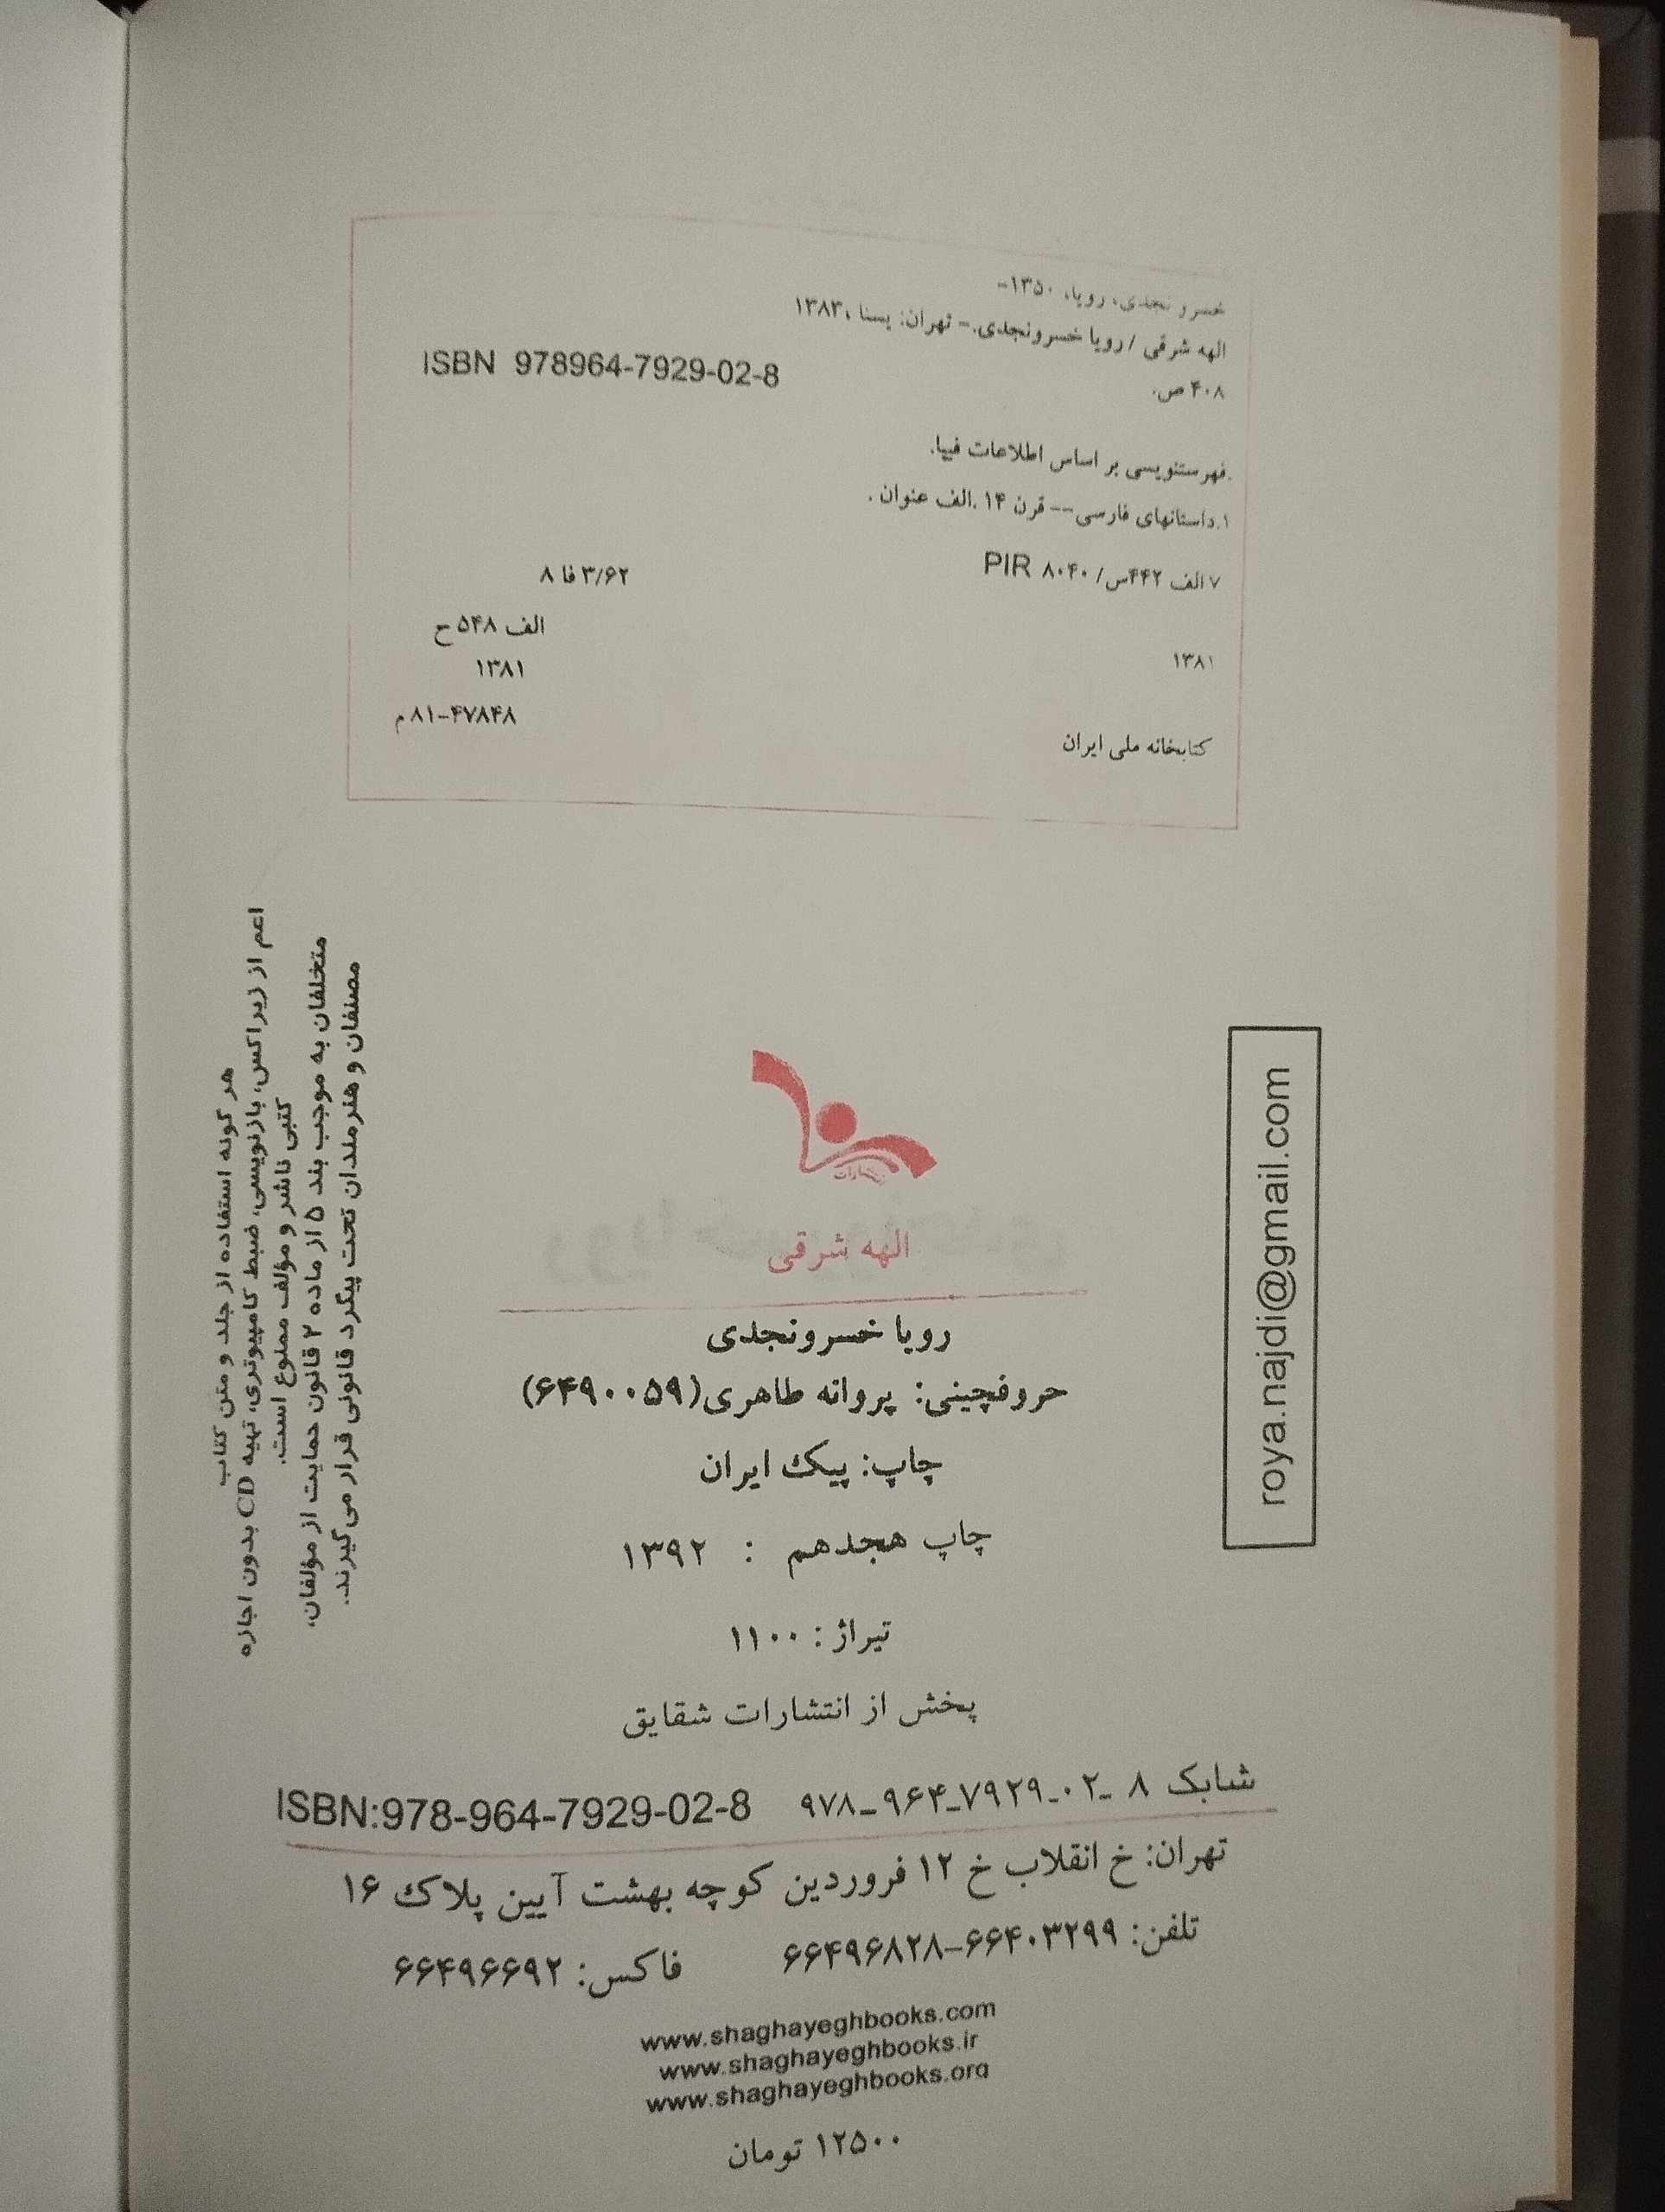 خسرو نجدی، رویا، ۱۳۵۰-
الهه شرقی / رویا خسرونجدی.- تهران: یسنا ،۱۳۸۳
۴۰۸ ص.
ISBN 978964-7929-02-8
.فهرستنویسی بر اساس اطلاعات فیپا.
۱.داستانهای فارسی-- قرن ۱۴ .الف عنوان .
۷الف ۴۴۲س/ ۸۰۴۰ PIR
۳/۶۲ فا ۸
الف ۵۴۸ ح
۱۳۸۱
۱۳۸۱
۸۱-۴۷۸۴۸ م
کتابخانه ملی ایران
هر گونه استفاده از جلد و متن کتاب
اعم از زیراکس، بازنویسی، ضبط کامپیوتری، تهیه CD بدون اجازه
کتبی ناشر و مؤلف ممنوع است.
متخلفان به موجب بند ۵ از ماده ۲ قانون حمایت از مؤلفان،
مصنفان و هنرمندان تحت پیگرد قانونی قرار می‌گیرند.
roya.najdi@gmail.com
الهه شرقی
رویا خسرونجدی
حروفچینی: پروانه طاهری(۶۴۹۰۰۵۹)
چاپ: پیک ایران
چاپ هجدهم : ۱۳۹۲
تیراژ : ۱۱۰۰
پخش از انتشارات شقایق
شابک ۸ -۰۲-۷۹۲۹-۹۶۴-۹۷۸ ISBN:978-964-7929-02-8
تهران: خ انقلاب خ ۱۲ فروردین کوچه بهشت آیین پلاک ۱۶
تلفن: ۶۶۴۰۳۲۹۹-۶۶۴۹۶۸۲۸ فاکس: ۶۶۴۹۶۶۹۲
www.shaghayeghbooks.com
www.shaghayeghbooks.ir
www.shaghayeghbooks.org
۱۲۵۰۰ تومان